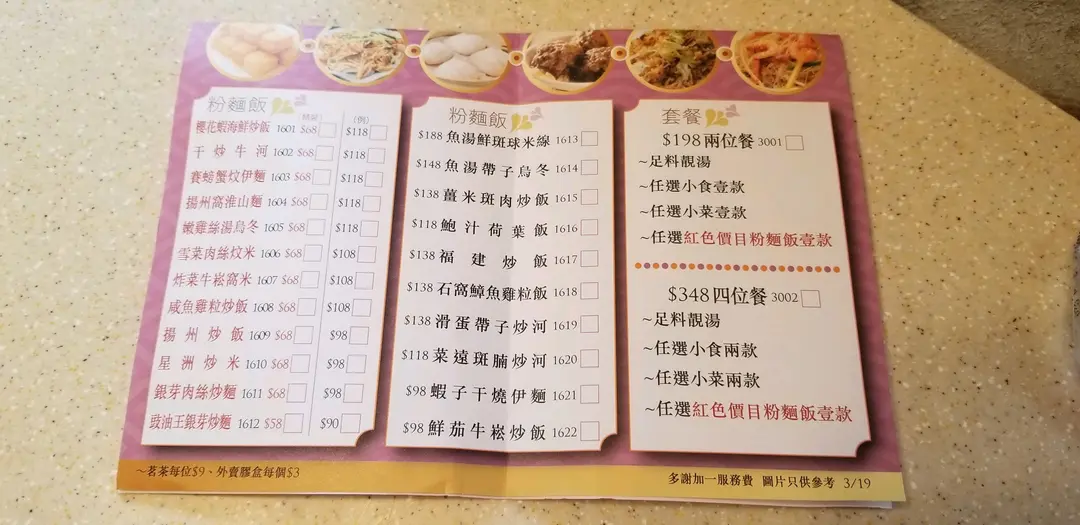 粉麵飯
(例)
櫻花蝦海鮮炒飯 1601 $68 $118
干炒牛河 1602 $68 $118
賽螃蟹炆伊麵 1603 $68 $118
揚州窩淮山麵 1604 $68 $118
嫩雞絲湯烏冬 1605 $68 $118
雪菜肉絲炆米 1606 $68 $108
炸菜牛崧窩米 1607 $68 $108
咸魚雞粒炒飯 1608 $68 $108
揚州炒飯 1609 $68 $98
星洲炒米 1610 $68 $98
銀芽肉絲炒麵 1611 $68 $98
豉油王銀芽炒麵 1612 $58 $90
粉麵飯
$188 魚湯鮮斑球米線 1613
$148 魚湯帶子烏冬 1614
$138 薑米斑肉炒飯 1615
$118 鮑汁荷葉飯 1616
$138 福建炒飯 1617
$138 石窩鱆魚雞粒飯 1618
$138 滑蛋帶子炒河 1619
$118 菜遠斑腩炒河 1620
$98 蝦子干燒伊麵 1621
$98 鮮茄牛崧炒飯 1622
套餐
$198 兩位餐 3001
~足料靚湯
~任選小食壹款
~任選小菜壹款
~任選紅色價目粉麵飯壹款
$348 四位餐 3002
~足料靚湯
~任選小食兩款
~任選小菜兩款
~任選紅色價目粉麵飯壹款
~茗茶每位$9、外賣膠盒每個$3
多謝加一服務費 圖片只供參考 3/19